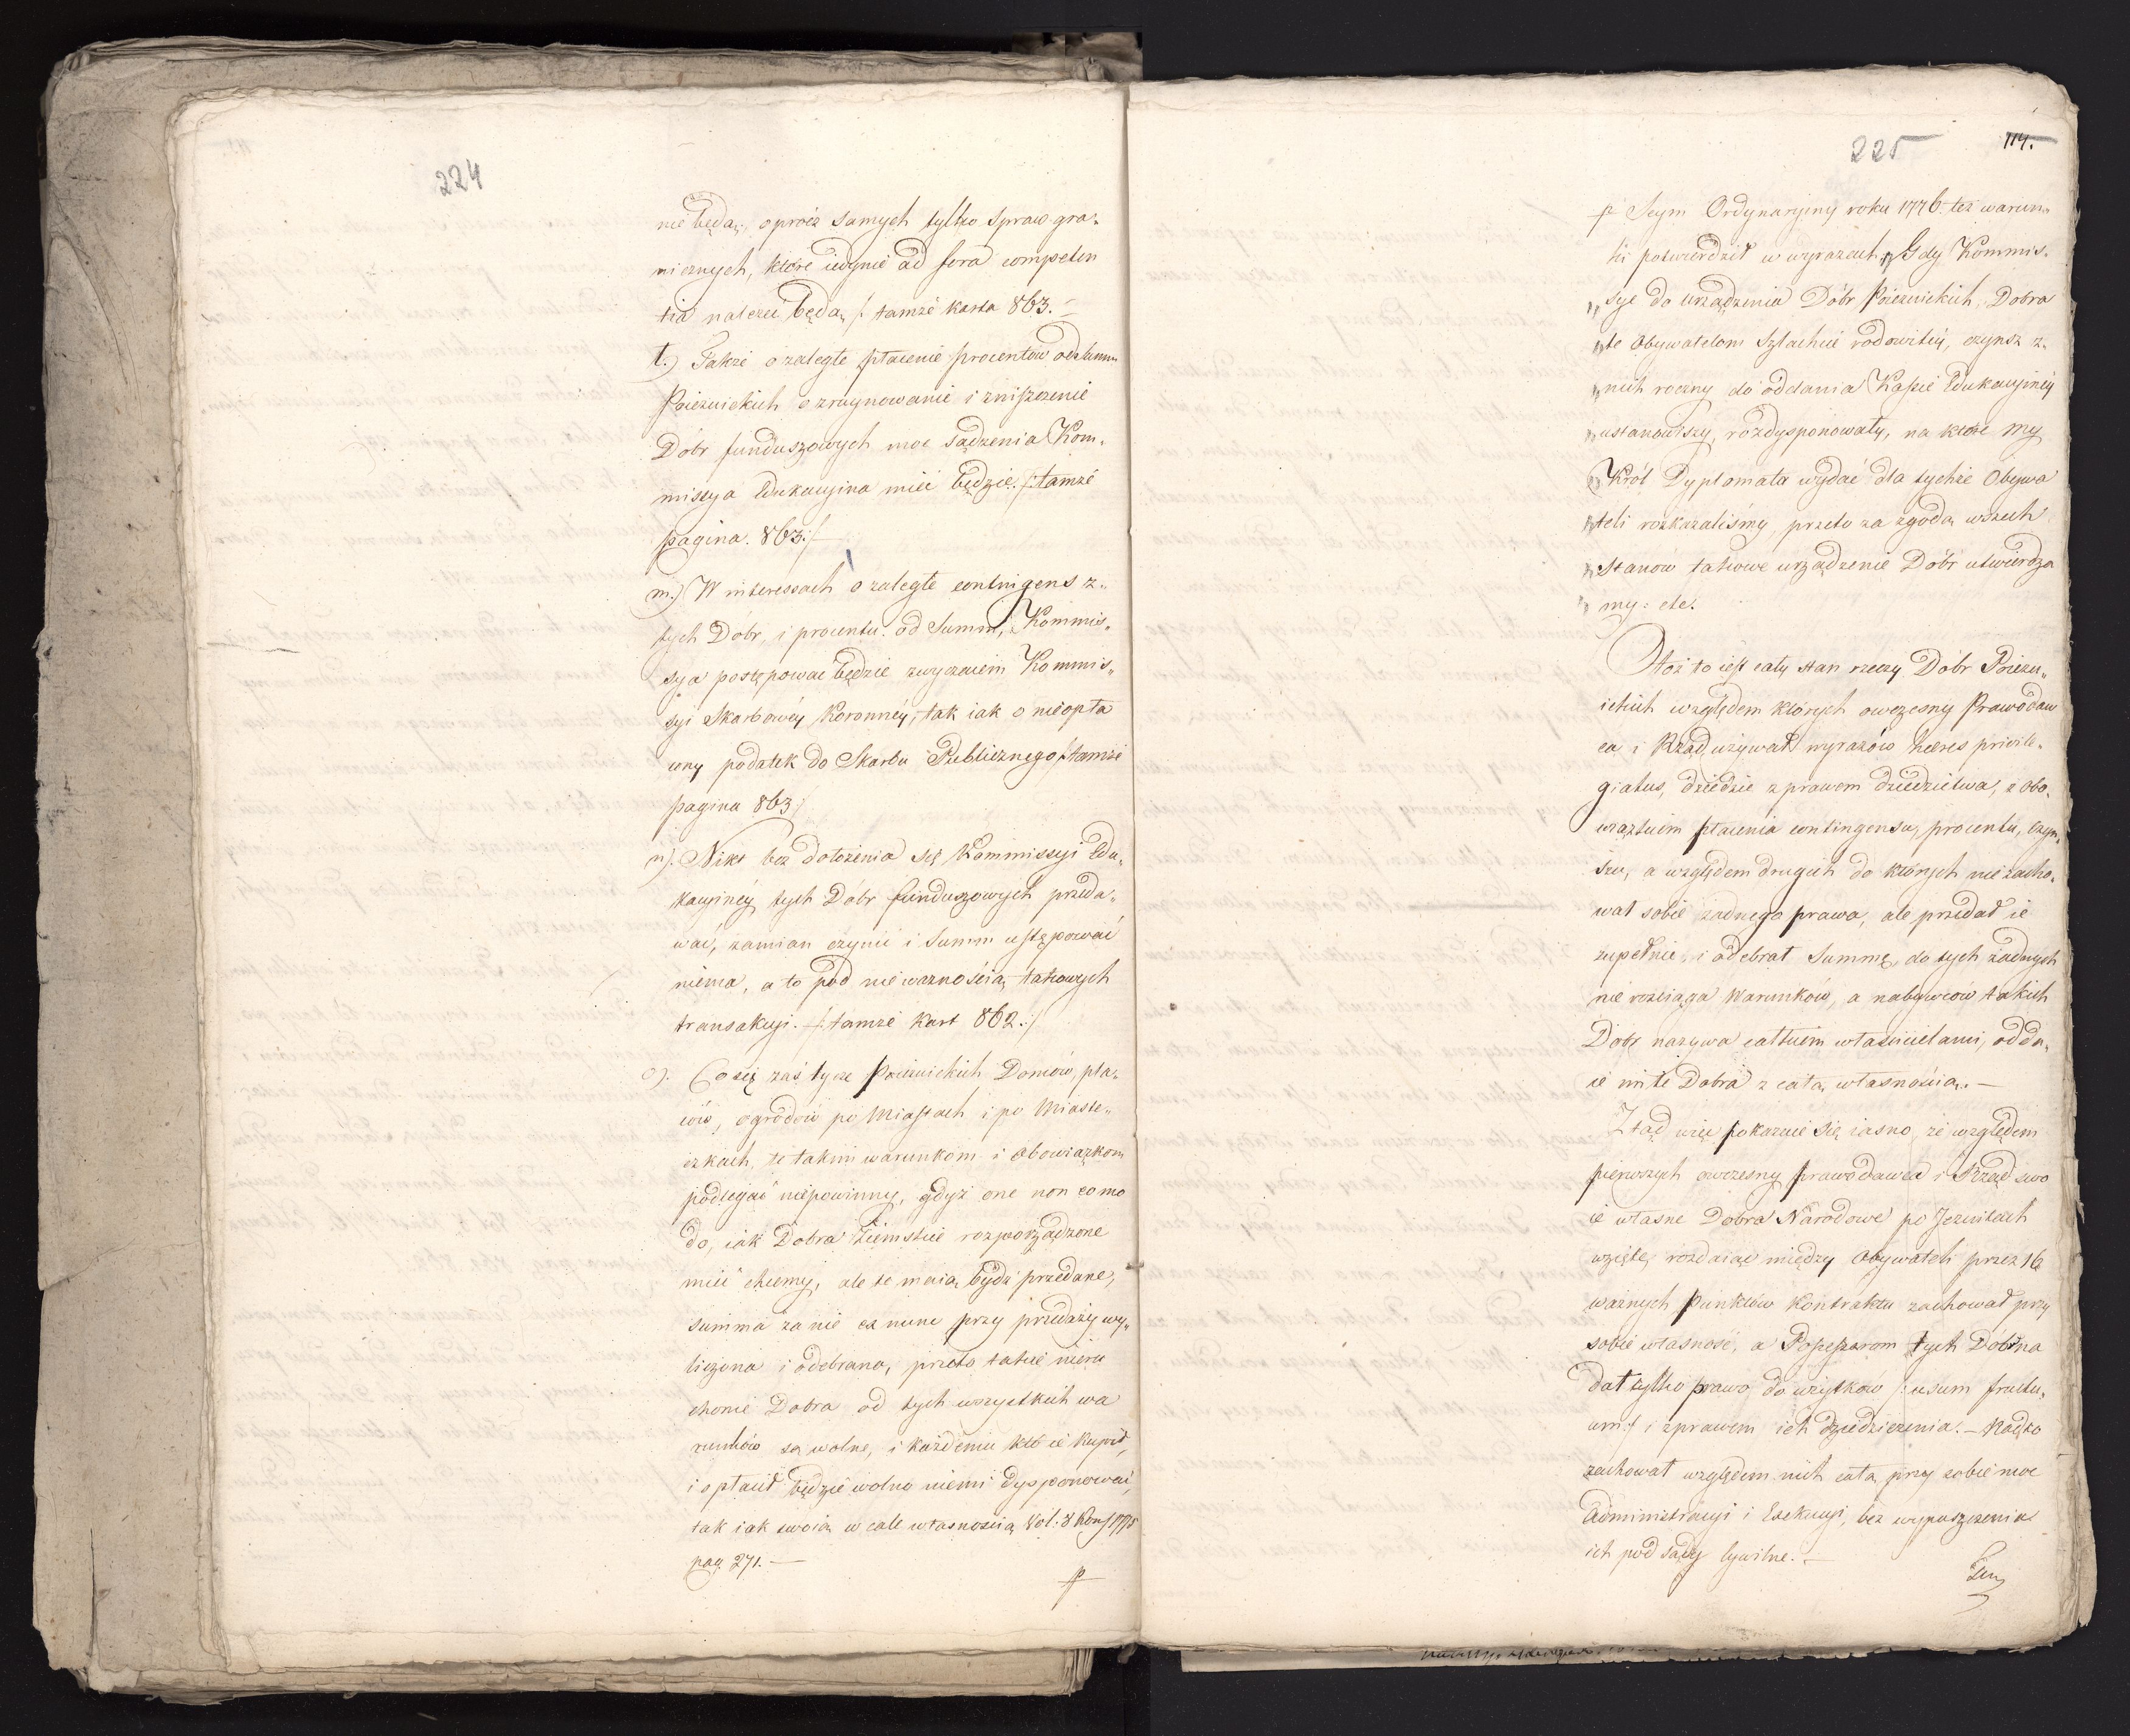 224
nie będą, oprócz samych tylko spraw gra„
nicznych, które iedynie ad fora competen
tia należeć będą /: tamże karta 863.—
ł.) Takze o zaległe płacenie procentów od summ
Pojezuickich o zruynowanie i zniszczenie
Dóbr funduszowych moc sądzenia Kom„
missya Edukacyina mieć będzie. /: tamże
pagina. 863:/—
m.) W interessach o zaległe contingens z„
tych Dóbr, i procentu od Summ, Kommis„
sya postępować będzie zwyczaiem Kommis„
syi Skarbowéy Koronnéy, tak iak o nieopła
cony podatek do Skarbu Publicznego /: tamże
pagina 863:/
n). Nikt bez dołożenia się Kommissyi Edu„
kacyinéy tych Dóbr funduszowych przeda„
wać, zamian czynić i Summ ustępować
niema, a to pod nieważnością takowych
transakcyi. /: tamże Kart 862.:/
o). Co się zaś tycze Pojezuickich Domów, pla„
ców, ogrodów po Miastach i po Miaste„
czkach, te takim warunkom i obowiązkom
podlegać niepowinny, gdyż one non eo mo
do, iak Dobra Ziemskie rozporządzone
mieć chcemy, ale te maią bydź przedane,
summa za nie ex nunc przy przedaży wy„
liczona i odebrana, przeto takie nieru
chome Dobra od tych wszystkich wa
runków są wolne, i każdemu kto ie kupił,
i opłacił będzie wolno niemi dysponować,
tak iak swoią w cale własnością Vol: 8 Konst 1775
pag 271.—
p
225
114.
p Seym Ordynaryiny roku 1776. też warun„
ki potwierdził w wyrazach „Gdy Kommis„
„sye do urządzenia Dóbr Pojezuickich, Dobra
„te Obywatelom Szlachcie rodowitéy, czynsz z„
„nich roczny do oddania Kassie Edukacyinéy
„ustanowiwszy, rozdysponowały, na które My
„Król Dyplomata wydać dla tychże Obywa
„teli rozkazaliśmy, przeto za zgodą wszech
„Stanów takowe urządzenie Dóbr utwierdza
„my: etc.
Otoż to iest cały stan rzeczy Dóbr Pojezu„
ickich względem których owczesny Prawodaw
ca i Rząd używał wyrazów haeres privile„
giatus, dziedzic z prawem dziedzictwa, z obo„
wiązkiem płacenia contingensu, procentu, czyn„
szu, a względem drugich do których nie zacho„
wał sobie żadnego prawa, ale przedał ie
zupełnie, i odebrał Summę, do tych żadnych
nie rozciąga Warunków, a nabywców takich
Dóbr nazywa całkiem właścicielami, odda„
ie im te Dobra z całą własnością.—
Ztąd więc pokazuie się iasno, że względem
pierwszych owczesny prawodawca i Rząd swo
ie własne Dobra Narodowe po Jezuitach
wzięte, rozdaiąc między Obywateli przez 16
ważnych Punktów Kontraktu zachował przy
sobie własność, a Possessorom tych Dóbr na
dał tylko prawo do użytków /: usum fructu„
um:/ i z prawem ich dziedziczenia.— Nadto
zachował względem nich całą przy sobie moc
Administracyi i Exekucyi, bez wypuszczenia
ich pod sądy Cywilne.—